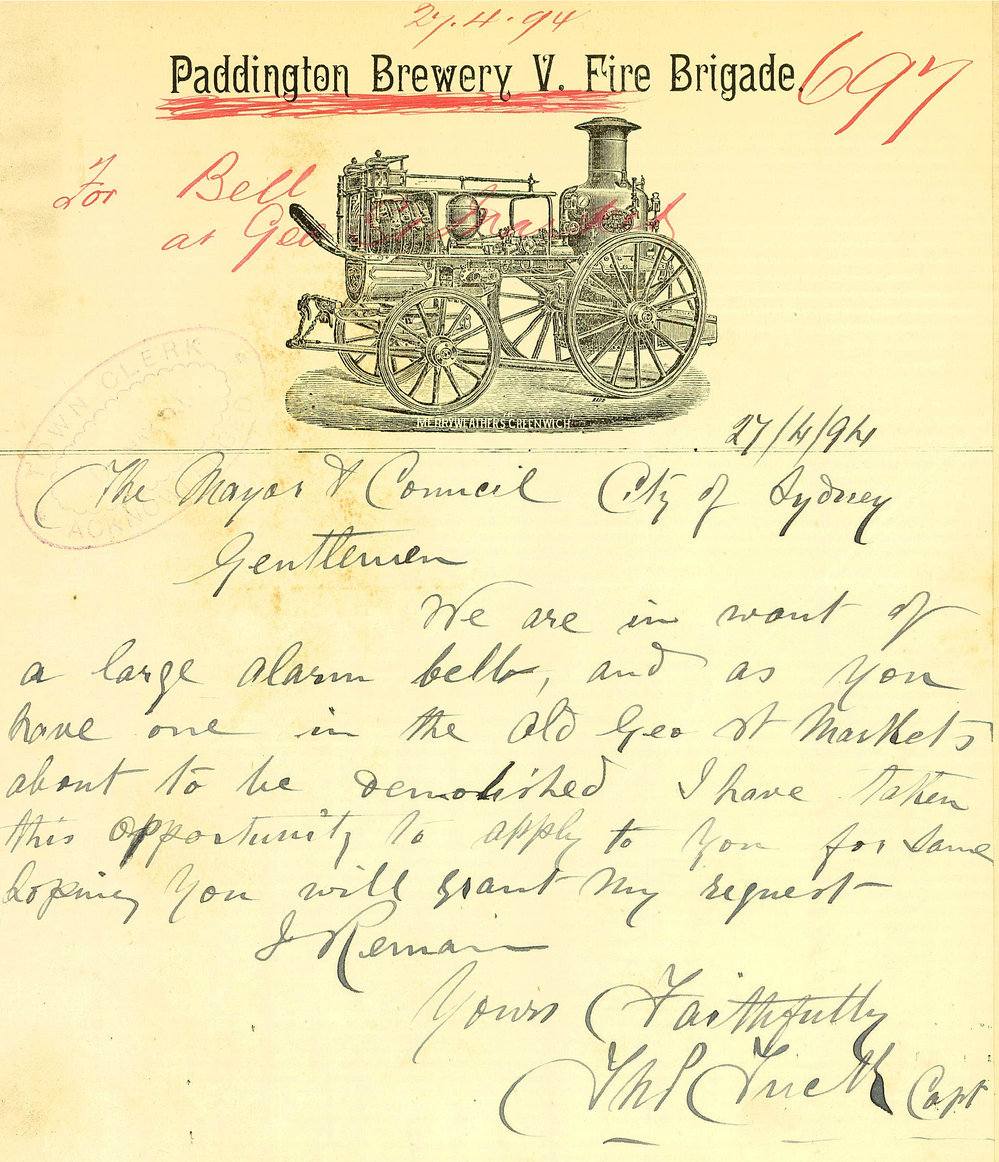 27.4.94
Paddington Brewery V. Fire Brigade.
697
For Bell
at Geo St Market
MERRYWEATHERS GREENWICH
TOWN CLERK
27/4/94
The Mayor & Council City of Sydney
Gentlemen
We are in want of
a large alarm bell, and as you
have one in the Old Geo St Markets
about to be demolished I have taken
this opportunity to apply to you for same
hoping You will grant my request
I Remain
Yours Faithfully
Thos Tuck Capt